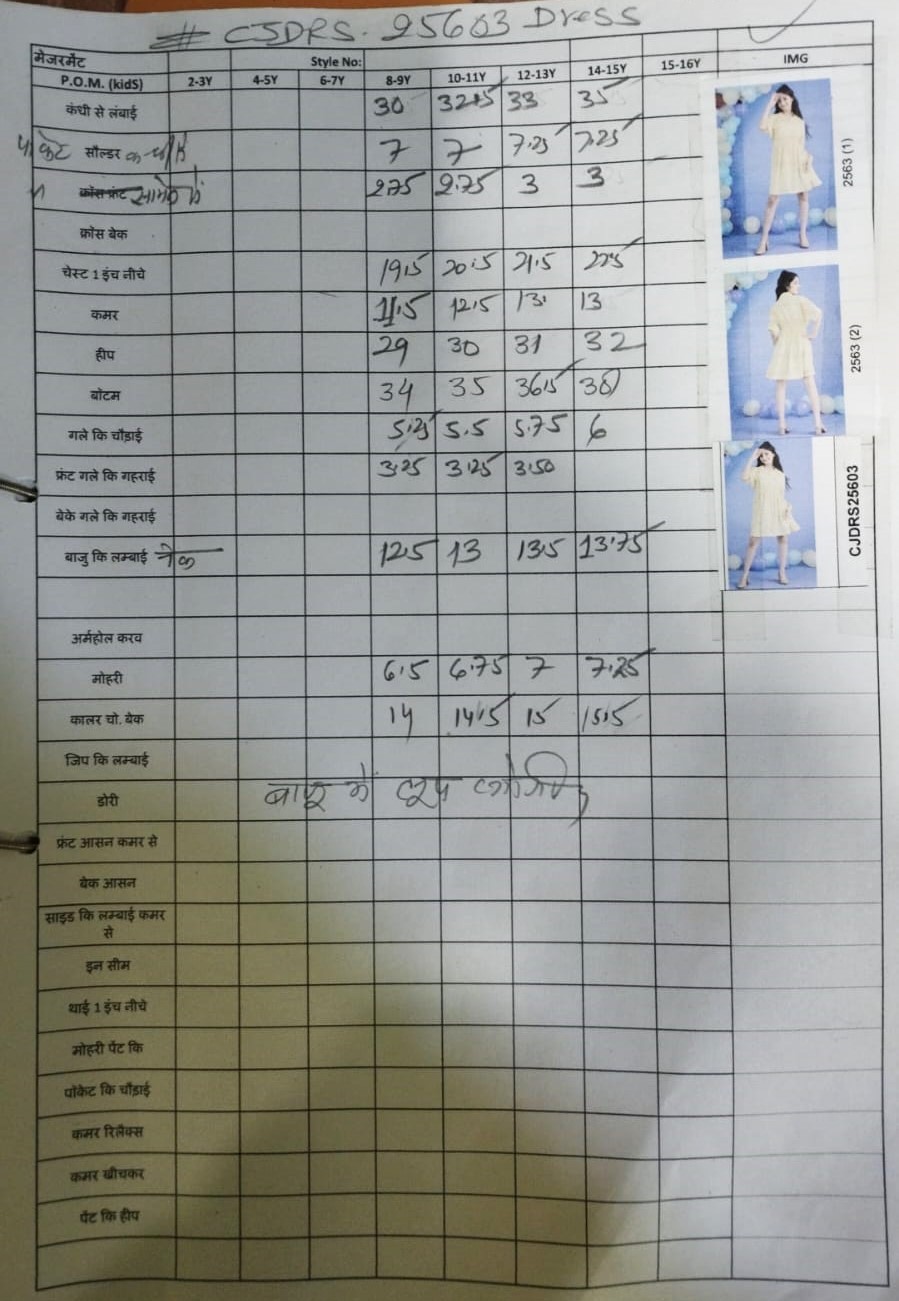 # CJDRS. 25603 Dress
मेजरमेंट Style No: IMG
P.O.M. (kidS) 2-3Y 4-5Y 6-7Y 8-9Y 10-11Y 12-13Y 14-15Y 15-16Y
कंधी से लंबाई 30 32.5 33 35
सौल्डर 7 7 7.25 7.25
क्रोस फ्रंट 2.75 2.75 3 3
क्रोस बेक
चेस्ट 1 इंच नीचे 19.5 20.5 21.5 22.5
कमर 11.5 12.5 13. 13
हीप 29 30 31 32
बोटम 34 35 36.5 38
गले कि चौड़ाई 5.25 5.5 5.75 6
फ्रंट गले कि गहराई 3.25 3.25 3.50
बेके गले कि गहराई
बाजु कि लम्बाई नेक 12.5 13 13.5 13.75
अर्महोल करव
मोहरी 6.5 6.75 7 7.25
कालर चो. बेक 14 14.5 15 15.5
जिप कि लम्बाई
डोरी
फ्रंट आसन कमर से
बेक आसन
साइड कि लम्बाई कमर
से
इन सीम
थाई 1 इंच नीचे
मोहरी पेंट कि
पॉकेट कि चौड़ाई
कमर रिलैक्स
कमर खीचकर
पेंट कि हीप
2563 (1)
2563 (2)
CJDRS25603